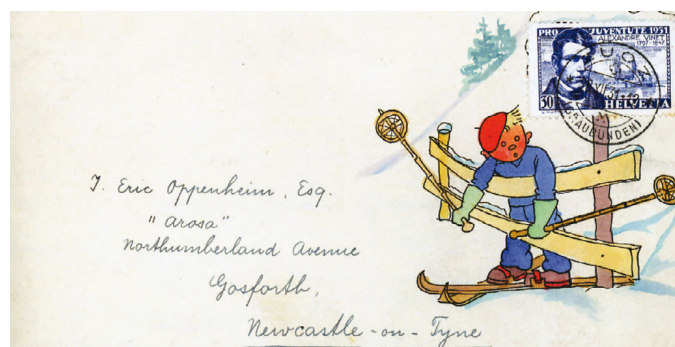 PRO JUVENTUTE 1931
ALEXANDRE VINET
1797-1847
30 HELVETIA
(GRAUBÜNDEN)
J. Eric Oppenheim, Esq.
"Arosa"
Northumberland Avenue
Gosforth,
Newcastle-on-Tyne